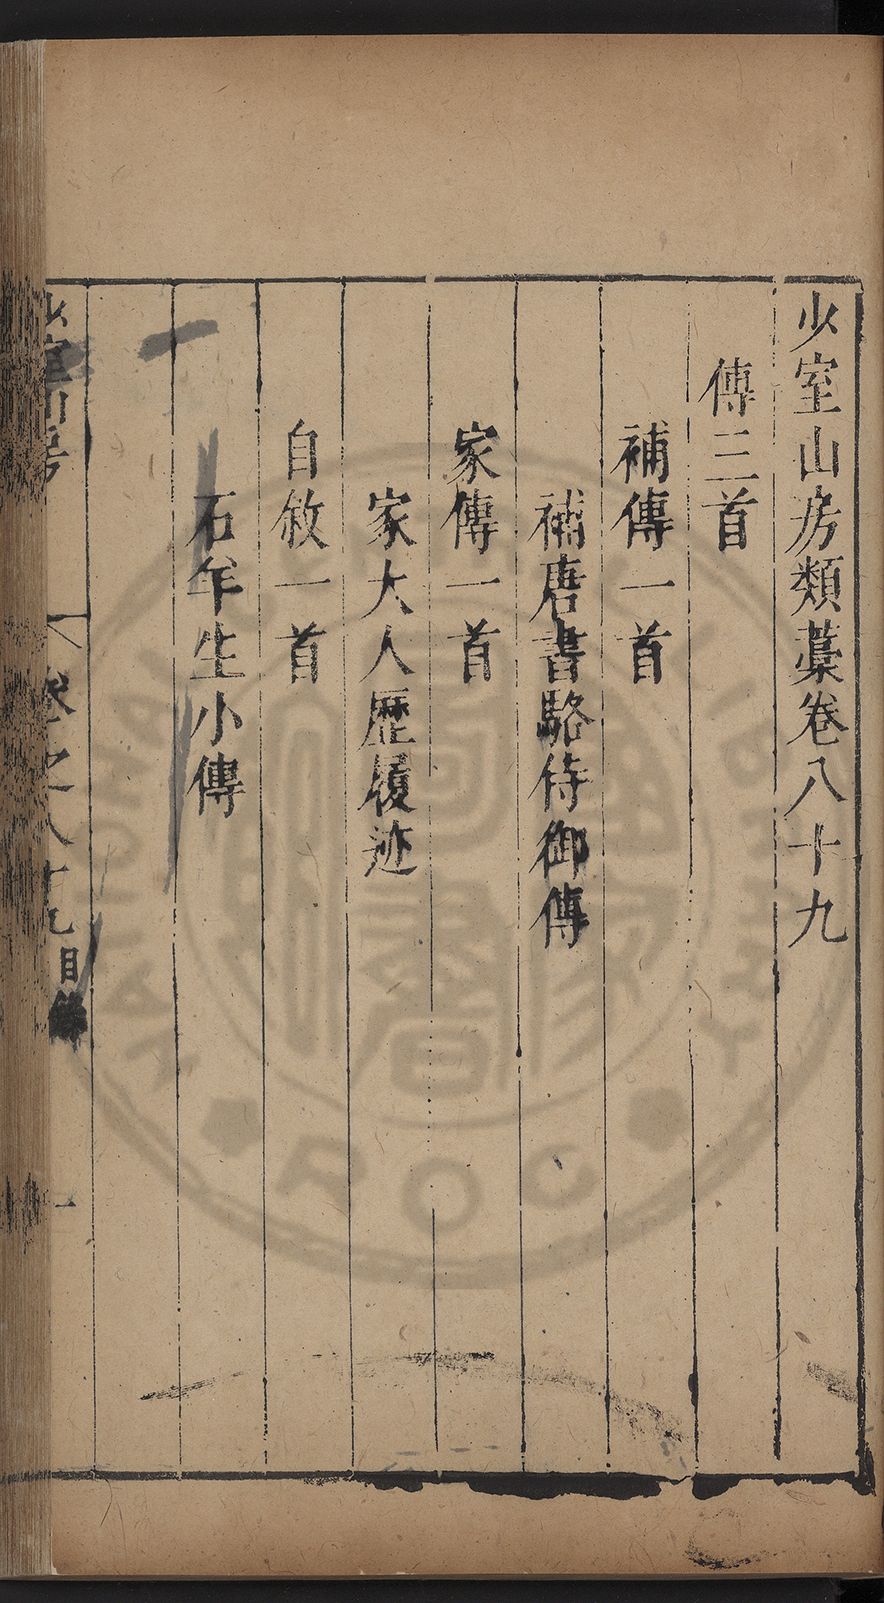 少室山房類藁卷八十九
傳三首
補傳一首
補唐書駱侍御傳
家傳一首
家大人歷履迹
自敘一首
石羊生小傳
少室山房
卷之八十九
目錄
一